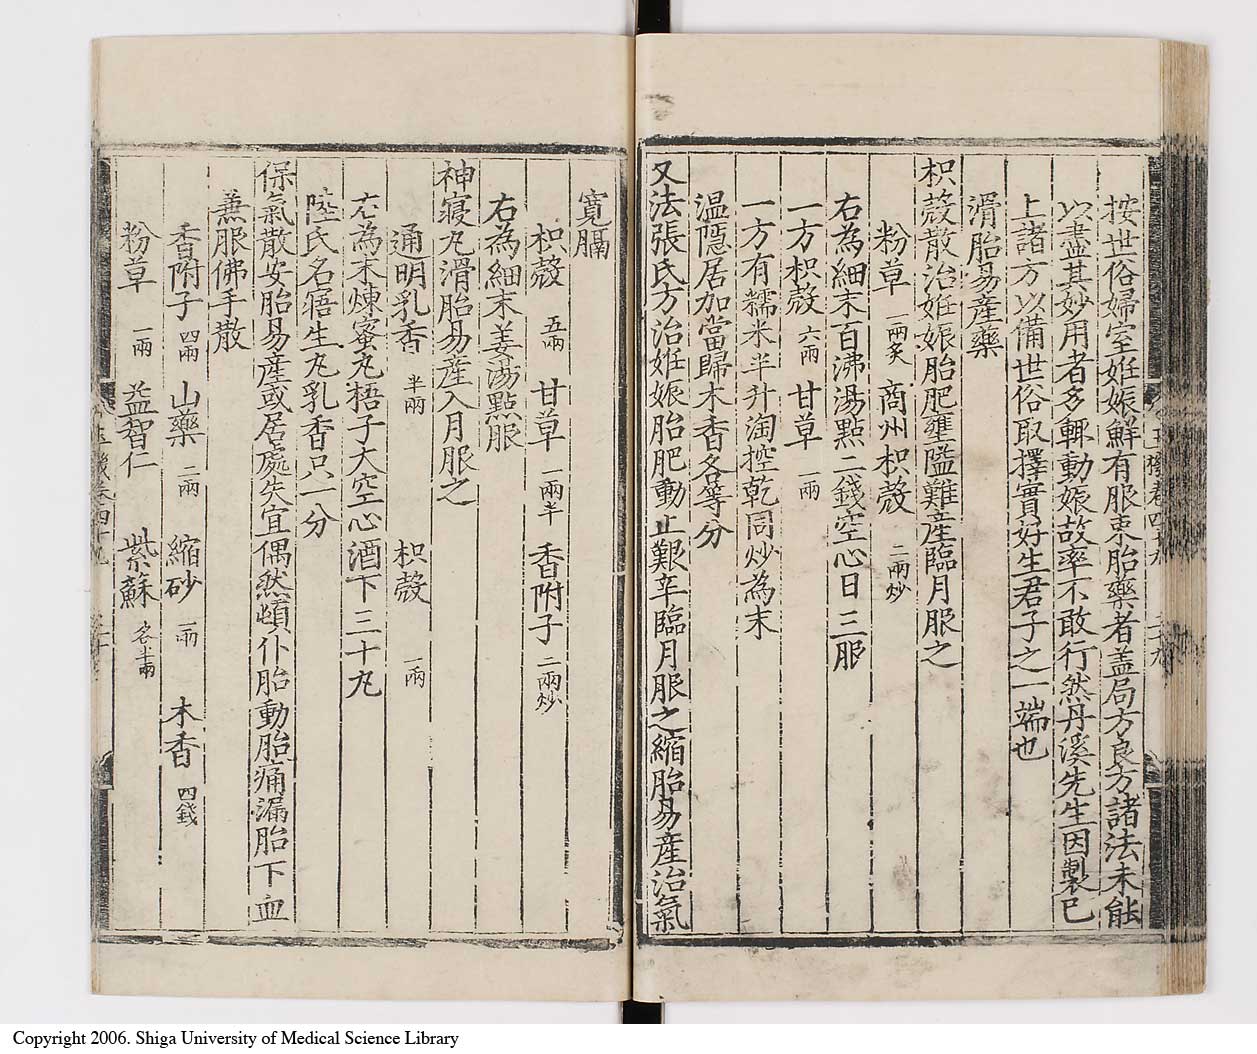 按世俗婦室姙娠鮮有服束胎藥者盖局方良方諸法未能
以盡其妙用者多輒動娠故率不敢行然丹溪先生因製已
上諸方以備世俗取擇實好生君子之一端也
滑胎易産藥
枳殼散治姙娠胎肥壅隘難産臨月服之
粉草 一兩炙 商州枳殼 二兩炒
右為細末百沸湯點二錢空心日三服
一方枳殼 六兩 甘草 一兩
一方有糯米半升淘控乾同炒為末
温隱居加當歸木香各等分
又法張氏方治姙娠胎肥動止艱辛臨月服之縮胎易産治氣
寛膈
枳殼 五兩 甘草 一兩半 香附子 二兩炒
右為細末姜湯點服
神寢丸滑胎易産入月服之
通明乳香 半兩 枳殼 一兩
右為末煉蜜丸梧子大空心酒下三十丸
陸氏名寤生丸乳香只一分
保氣散安胎易産或居處失宜偶然頓仆胎動胎痛漏胎下血
兼服佛手散
香附子 四兩 山藥 二兩 縮砂 一兩 木香 四錢
粉草 一兩 益智仁 紫蘇 各半兩
Copyright 2006. Shiga University of Medical Science Library